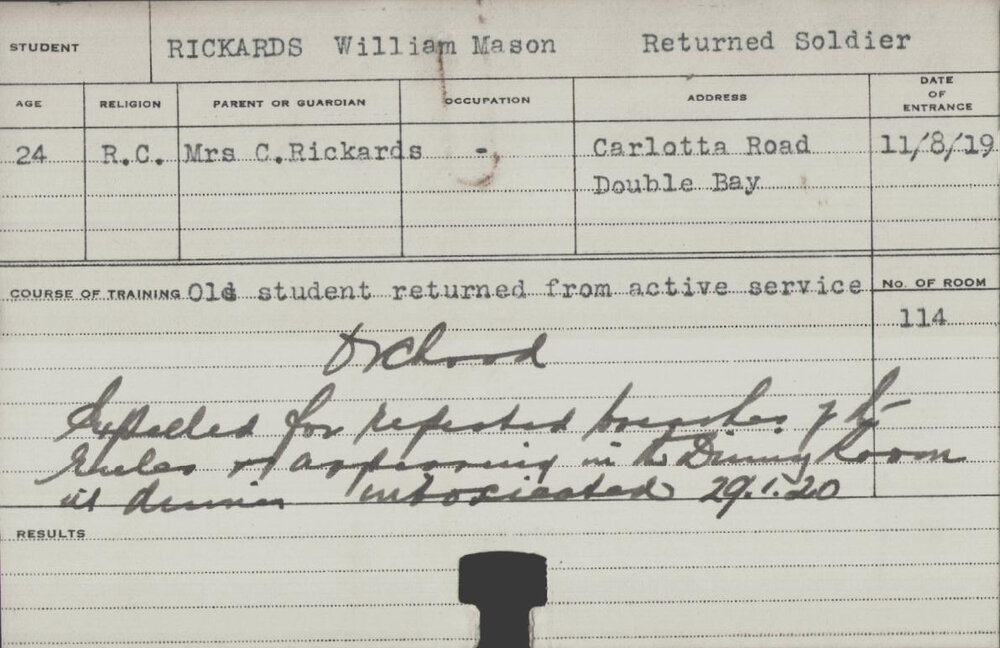 STUDENT RICKARDS William Mason Returned Soldier
AGE RELIGION PARENT OR GUARDIAN OCCUPATION ADDRESS DATE OF ENTRANCE
24 R.C. Mrs C.Rickards - Carlotta Road 11/8/19
Double Bay
COURSE OF TRAINING Old student returned from active service No. OF ROOM
114
Orchard
Expelled for repeated breaches of the
rules & appearing in the Dining Room
at dinner intoxicated 29.1.20
RESULTS